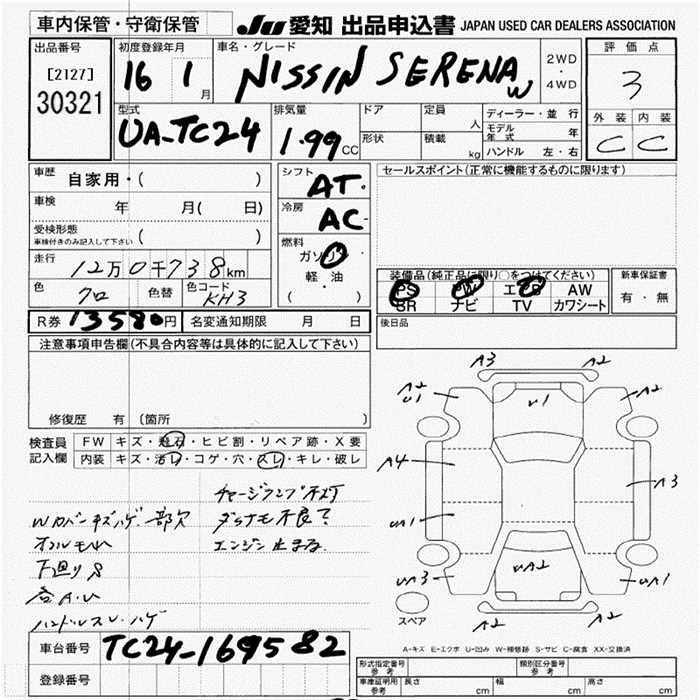 車内保管・守衛保管
JU 愛知 出品申込書 JAPAN USED CAR DEALERS ASSOCIATION
出品番号
[2127]
30321
初度登録年月
16 1月
車名・グレード
NISSIN SERENA W
2WD
・
4WD
評価点
3
外装 内装
C C
型式
UA-TC24
排気量
1.99 CC
ドア
形状
定員 人
積載 kg
ディーラー・並行
モデル年式 年
ハンドル 左・右
車歴 自家用・( )
車検 年 月( 日)
受検形態
車検付きのみ記入して下さい ( )
走行 12万0千738km
色 クロ 色替 色コード KH3
シフト AT
冷房 AC
燃料 ガソリン
軽・油
( )
セールスポイント(正常に機能するものに限ります)
装備品(純正品に限り○をつけてください)
PS PW エアB AW
SR ナビ TV カワシート
新車保証書
有・無
R券 13580円 名変通知期限 月 日
後日品
注意事項申告欄(不具合内容等は具体的に記入して下さい)
修復歴 有 (箇所 )
検査員記入欄
FW キズ・飛石・ヒビ割・リペア跡・X要
内装 キズ・汚レ・コゲ・穴・スレ・キレ・破レ
チャージランプ不灯
Wカバーキズハゲ 部欠 ダイナモ不良?
エンジン止まる
下廻りS
ハンドルスレ・ハゲ
A3 A2
A2 U1 U1 A2
A4 A3
UA1
UA3 UA2 UA1
A2 A2
スペア
A-キズ E-エクボ U-凹み W-補修跡 S-サビ C-腐食 XX-交換済
車台番号 TC24-169582
登録番号
形式指定番号 参考 類別区分番号 参考
車庫証明用 参考 長さ cm 幅 cm 高さ cm